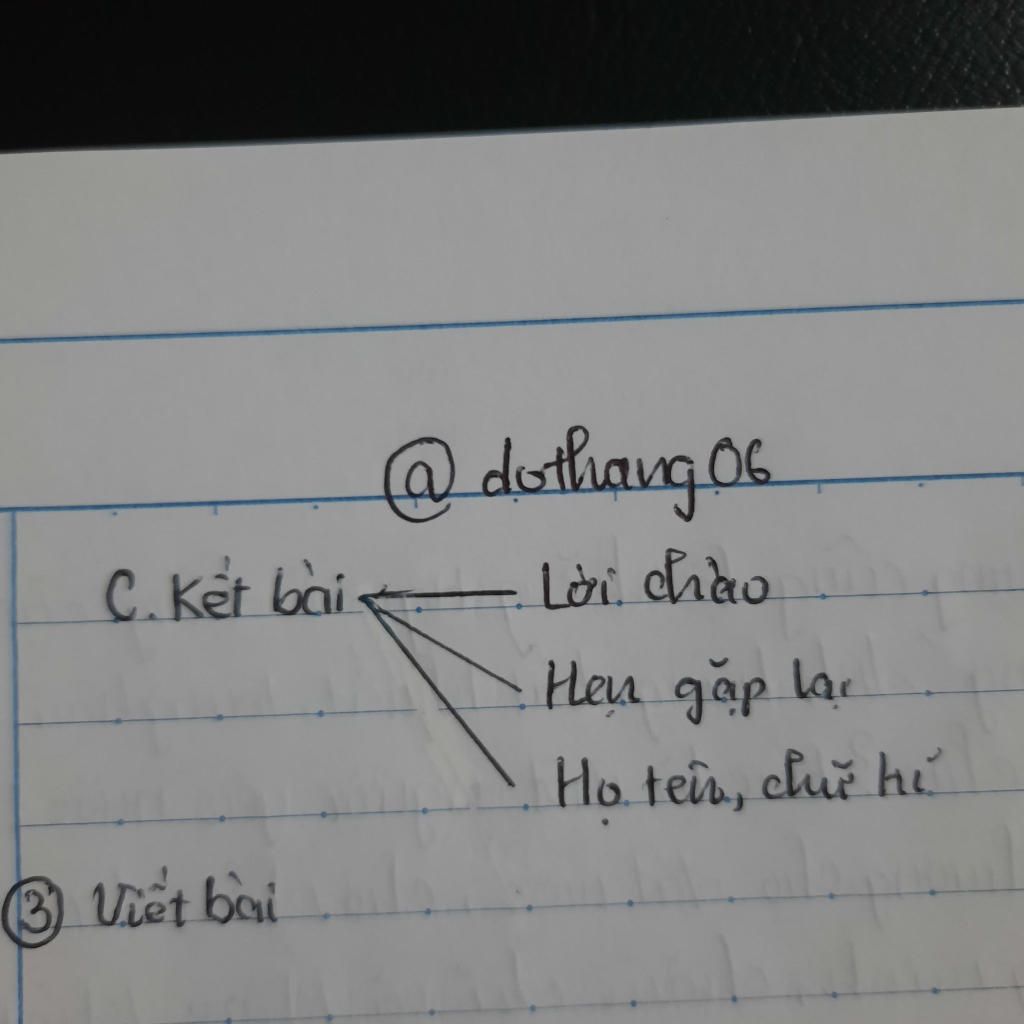 @dothang06
C. Kết bài Lời chào
Hẹn gặp lại
Họ tên, chữ kí
3 Viết bài